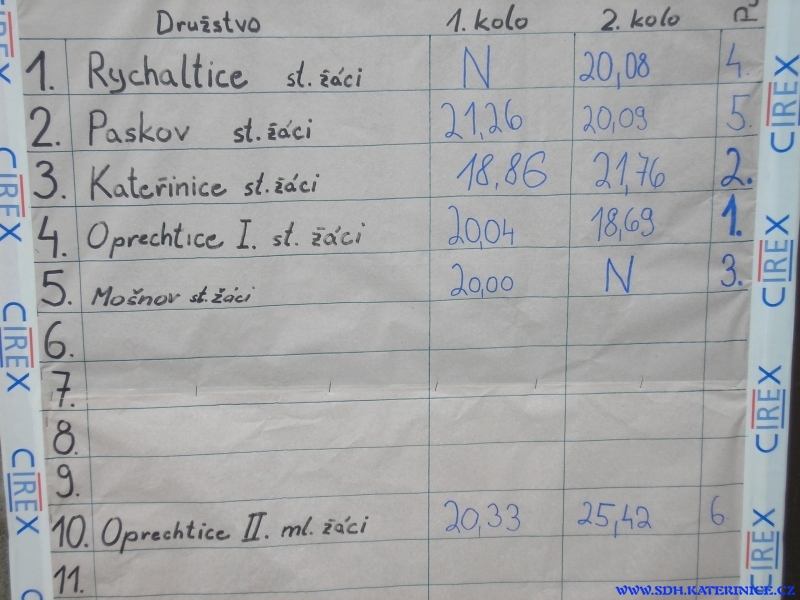 Družstvo 1. kolo 2. kolo
1. Rychaltice st. žáci N 20,08 4.
2. Paskov st. žáci 21,26 20,09 5.
3. Kateřinice st. žáci 18,86 21,76 2.
4. Oprechtice I. st. žáci 20,04 18,69 1.
5. Mošnov st. žáci 20,00 N 3.
6.
7.
8.
9.
10. Oprechtice II. ml. žáci 20,33 25,42 6
11.
CIREX
CIREX
CIREX
CIREX
CIREX
CIREX
CIREX
WWW.SDH.KATERINICE.CZ